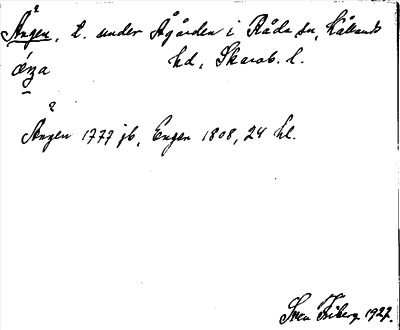 Ängen, t. under Ågården i Råda sn, Kållands
hd, Skarab. l.
Ängen 1777 jb, Engen 1808, 24 hl.
Sven Friberg 1927.